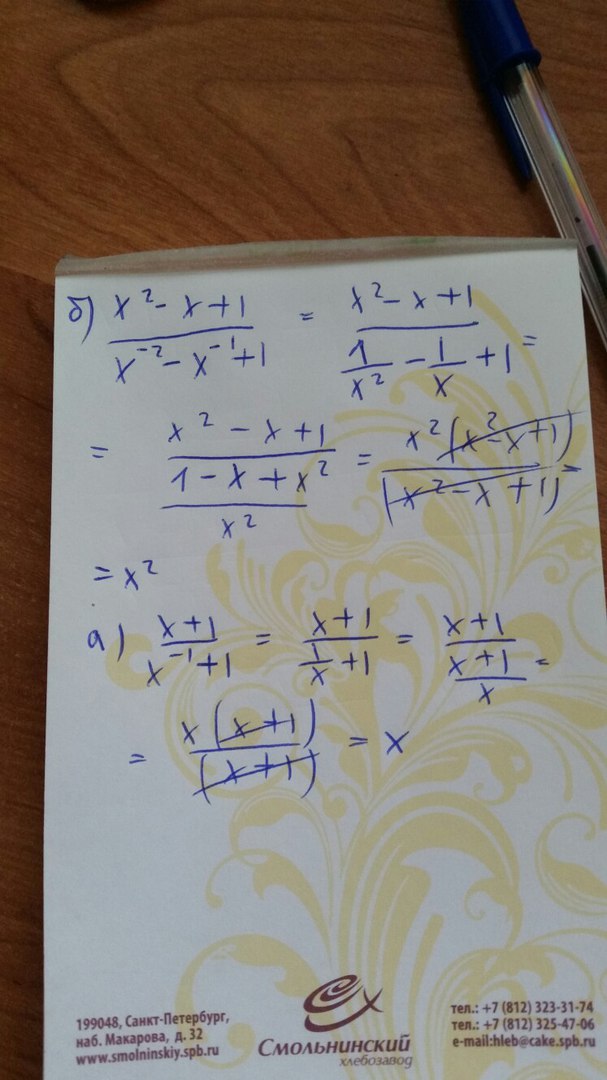 б) (x² - x + 1)/(x⁻² - x⁻¹ + 1) = (x² - x + 1)/(1/x² - 1/x + 1) =
= (x² - x + 1)/((1 - x + x²)/x²) = x²(x² - x + 1)/(x² - x + 1) =
= x²
а) (x + 1)/(x⁻¹ + 1) = (x + 1)/(1/x + 1) = (x + 1)/((x + 1)/x) =
= x(x + 1)/(x + 1) = x
199048, Санкт-Петербург,
наб. Макарова, д. 32
www.smolninskiy.spb.ru
Смольнинский
хлебозавод
тел.: +7 (812) 323-31-74
тел.: +7 (812) 325-47-06
e-mail:hleb@cake.spb.ru